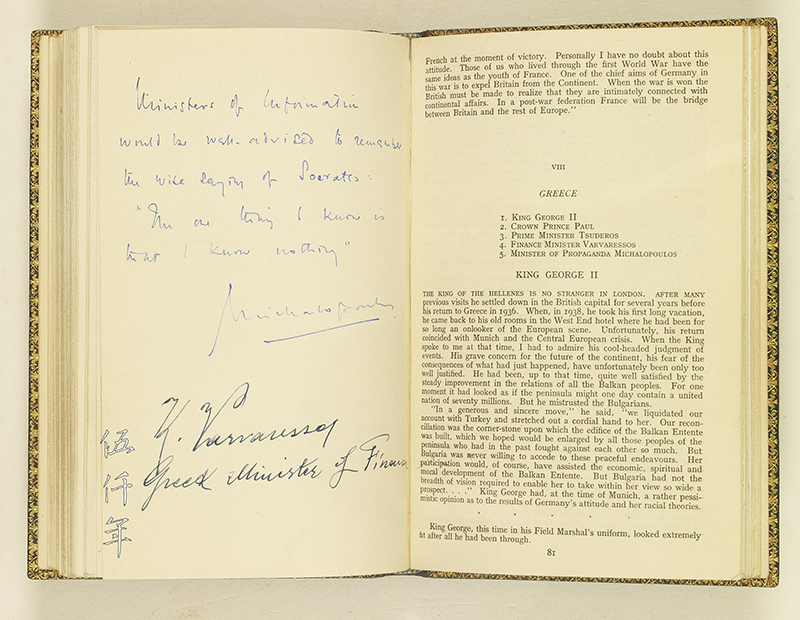 Ministers of Information
would be well advised to remember
the wise saying of Socrates:
"The one thing I know is
that I know nothing"
Michalopoulos
K. Varvaressos
Greek Minister of Finance
伍
仟
年
French at the moment of victory. Personally I have no doubt about this
attitude. Those of us who lived through the first World War have the
same ideas as the youth of France. One of the chief aims of Germany in
this war is to expel Britain from the Continent. When the war is won the
British must be made to realize that they are intimately connected with
continental affairs. In a post-war federation France will be the bridge
between Britain and the rest of Europe."
VIII
GREECE
1. KING GEORGE II
2. CROWN PRINCE PAUL
3. PRIME MINISTER TSUDEROS
4. FINANCE MINISTER VARVARESSOS
5. MINISTER OF PROPAGANDA MICHALOPOULOS
KING GEORGE II
THE KING OF THE HELLENES IS NO STRANGER IN LONDON. AFTER MANY
previous visits he settled down in the British capital for several years before
his return to Greece in 1936. When, in 1938, he took his first long vacation,
he came back to his old rooms in the West End hotel where he had been for
so long an onlooker of the European scene. Unfortunately, his return
coincided with Munich and the Central European crisis. When the King
spoke to me at that time, I had to admire his cool-headed judgment of
events. His grave concern for the future of the continent, his fear of the
consequences of what had just happened, have unfortunately been only too
well justified. He had been, up to that time, quite well satisfied by the
steady improvement in the relations of all the Balkan peoples. For one
moment it had looked as if the peninsula might one day contain a united
nation of seventy millions. But he mistrusted the Bulgarians.
"In a generous and sincere move," he said, "we liquidated our
account with Turkey and stretched out a cordial hand to her. Our recon-
ciliation was the corner-stone upon which the edifice of the Balkan Entente
was built, which we hoped would be enlarged by all those peoples of the
peninsula who had in the past fought against each other so much. But
Bulgaria was never willing to accede to these peaceful endeavours. Her
participation would, of course, have assisted the economic, spiritual and
moral development of the Balkan Entente. But Bulgaria had not the
breadth of vision required to enable her to take within her view so wide a
prospect. . . ." King George had, at the time of Munich, a rather pessi-
mistic opinion as to the results of Germany's attitude and her racial theories.
. . . . .
King George, this time in his Field Marshal's uniform, looked extremely
fit after all he had been through.
81